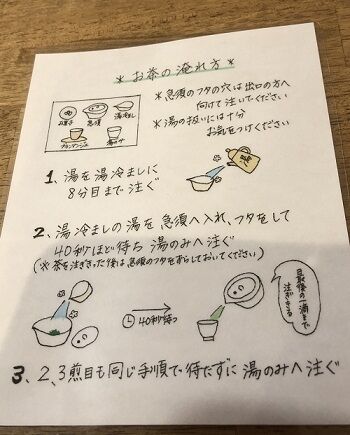 ※ お茶の淹れ方 ※
※ 急須のフタの穴は出口の方へ
向けて注いでください
※ 湯の扱いには十分
お気をつけください
お菓子 急須 湯冷まし
湯のみ
1、湯を湯冷ましに
8分目まで注ぐ
2、湯冷ましの湯を急須へ入れ、フタをして
40秒ほど待ち 湯のみへ注ぐ
(※ 茶を注ぎきった後は急須のフタをずらしておいてください)
40秒待つ
最後の一滴まで
注ぎきる
3、2、3煎目も同じ手順で待たずに湯のみへ注ぐ